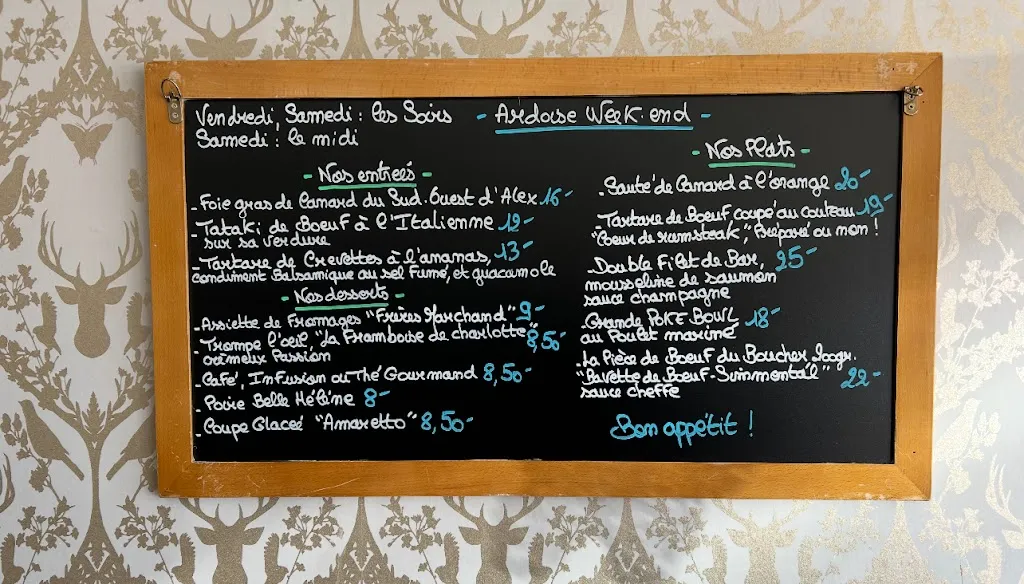 Vendredi, Samedi : les Soirs
Samedi : le midi
- Ardoise Week-end -
- Nos entrées -
- Foie gras de Canard du Sud-Ouest d'Alex 16-
- Tataki de Boeuf à l'Italienne 12-
sur sa verdure
- Tartare de Crevettes à l'ananas, 13-
condiment Balsamique au sel Fumé, et guacamole
- Nos desserts -
- Assiette de Fromages "Frères Marchand" 9-
- Trompe l'oeil, "La Framboise de charlotte" 8,50-
crémeux Passion
- Café, Infusion ou Thé Gourmand 8,50-
- Poire Belle Hélène 8-
- Coupe Glacée "Amaretto" 8,50-
- Nos Plats -
- Sauté de Canard à l'orange 20-
- Tartare de Boeuf coupé au couteau 19-
"Coeur de rumsteak", Préparé ou non !
- Double Filet de Bar, 25-
mousseline de saumon
sauce champagne
- Grande POKE BOWL 18-
au Poulet mariné
- La Pièce de Boeuf du Boucher 300gr.
"Bavette de Boeuf-Simmental" 22-
sauce cheffe
Bon appétit !